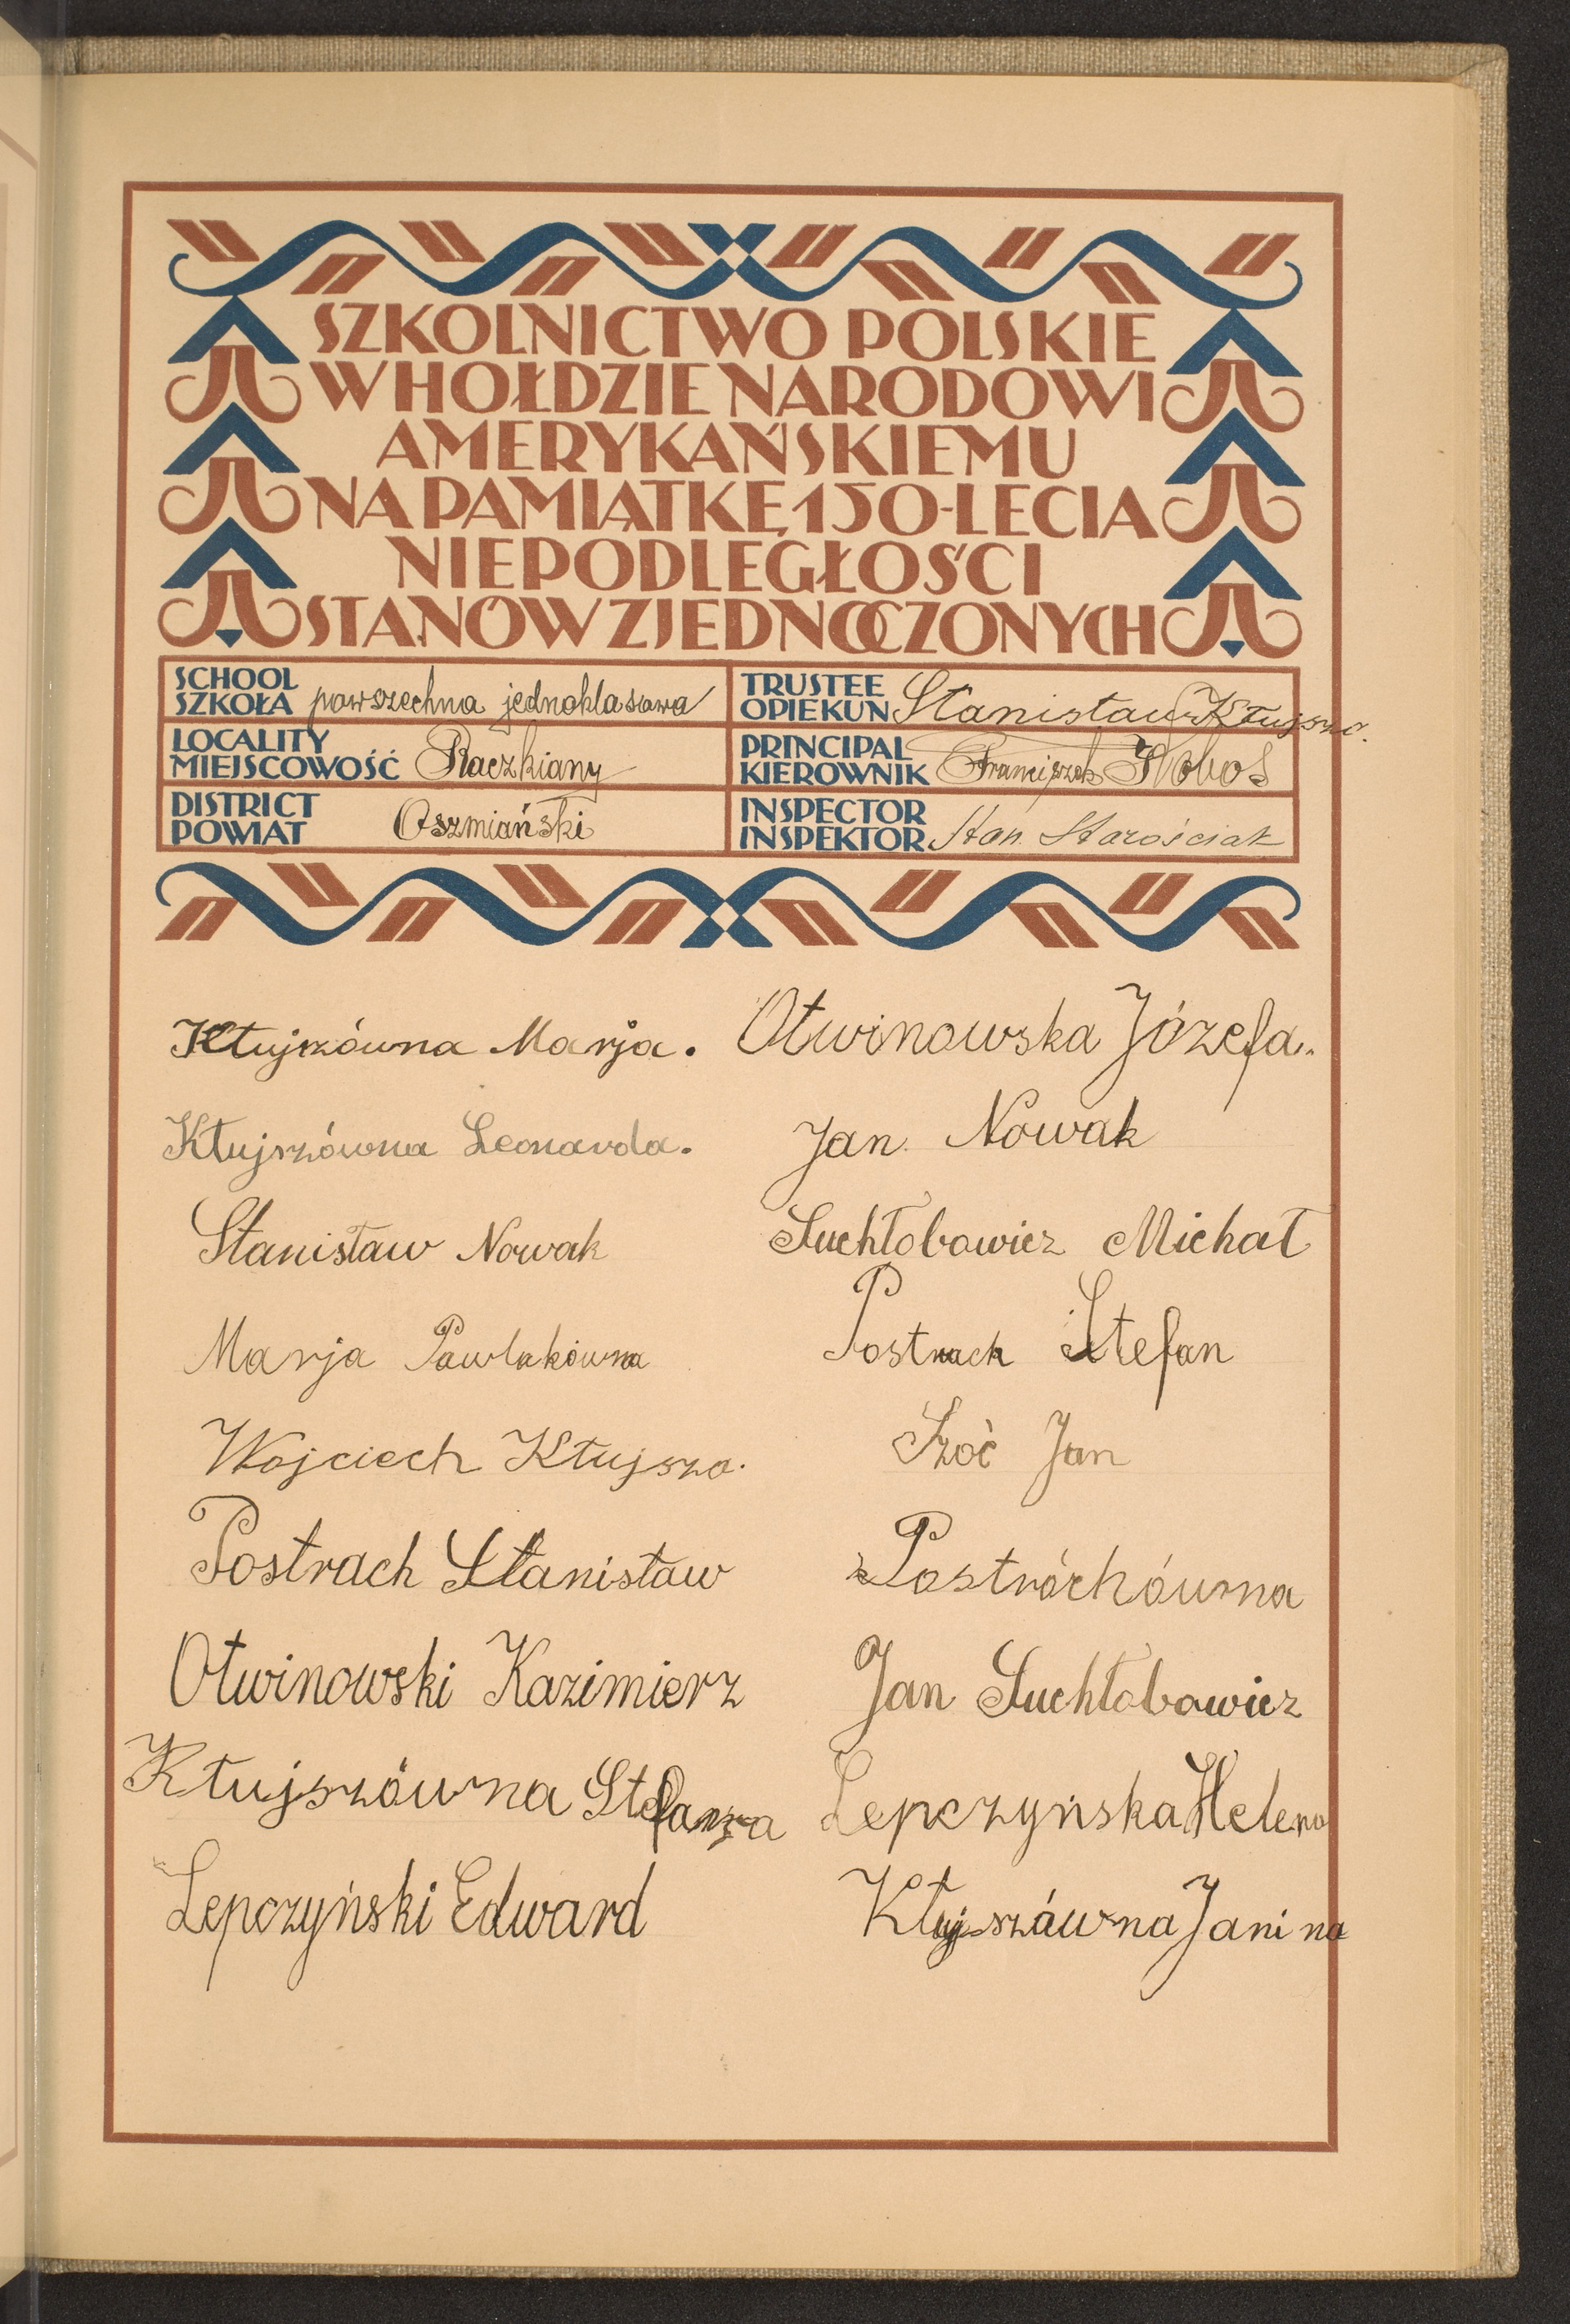 SZKOLNICTWO POLSKIE
W HOŁDZIE NARODOWI
AMERYKAŃSKIEMU
NA PAMIĄTKĘ 150-LECIA
NIEPODLEGŁOŚCI
STANÓW ZJEDNOCZONYCH
SCHOOL
SZKOŁA powszechna jednoklasowa
LOCALITY
MIEJSCOWOŚĆ Raczkiany
DISTRICT
POWIAT Oszmiański
TRUSTEE
OPIEKUN Stanisław Kłujszo.
PRINCIPAL
KIEROWNIK Franciszek Kobos
INSPECTOR
INSPEKTOR Stan. Starościak
Kłujszówna Marja.
Kłujszówna Leonarda.
Stanisław Nowak
Marja Pawlakówna
Wojciech Kłujszo.
Postrach Stanisław
Otwinowski Kazimierz
Kłujszówna Stefanja
Lepczyński Edward
Otwinowska Józefa.
Jan Nowak
Suchłobowicz Michał
Postrach Stefan
Szoć Jan
Postróchówna
Jan Suchłobowicz
Lepczyńska Helena
Kłujszówna Janina